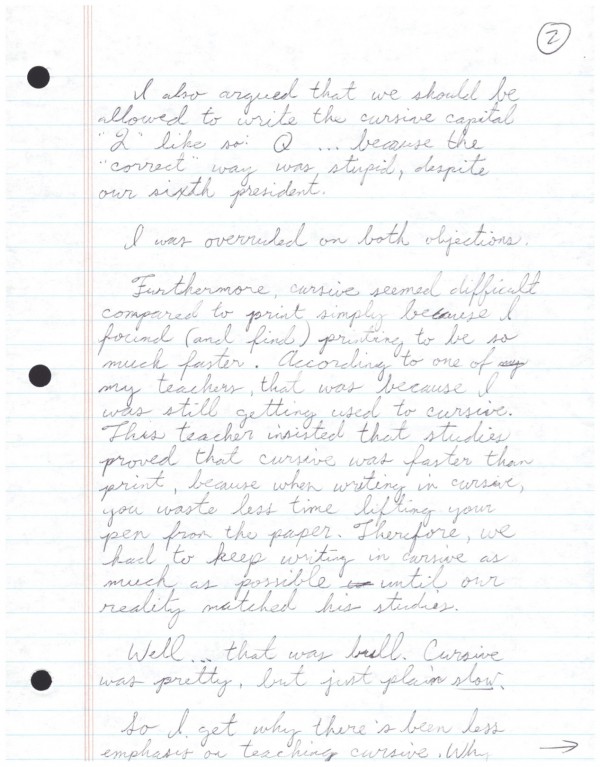 2
I also argued that we should be
allowed to write the cursive capital
"Q" like so: Q ... because the
"correct" way was stupid, despite
our sixth president.
I was overruled on both objections.
Furthermore, cursive seemed difficult
compared to print simply because I
found (and find) printing to be so
much faster. According to one of
my teachers, that was because I
was still getting used to cursive.
This teacher insisted that studies
proved that cursive was faster than
print, because when writing in cursive,
you waste less time lifting your
pen from the paper. Therefore, we
had to keep writing in cursive as
much as possible until our
reality matched his studies.
Well... that was bull. Cursive
was pretty, but just plain slow.
So I get why there's been less
emphasis on teaching cursive. Wh